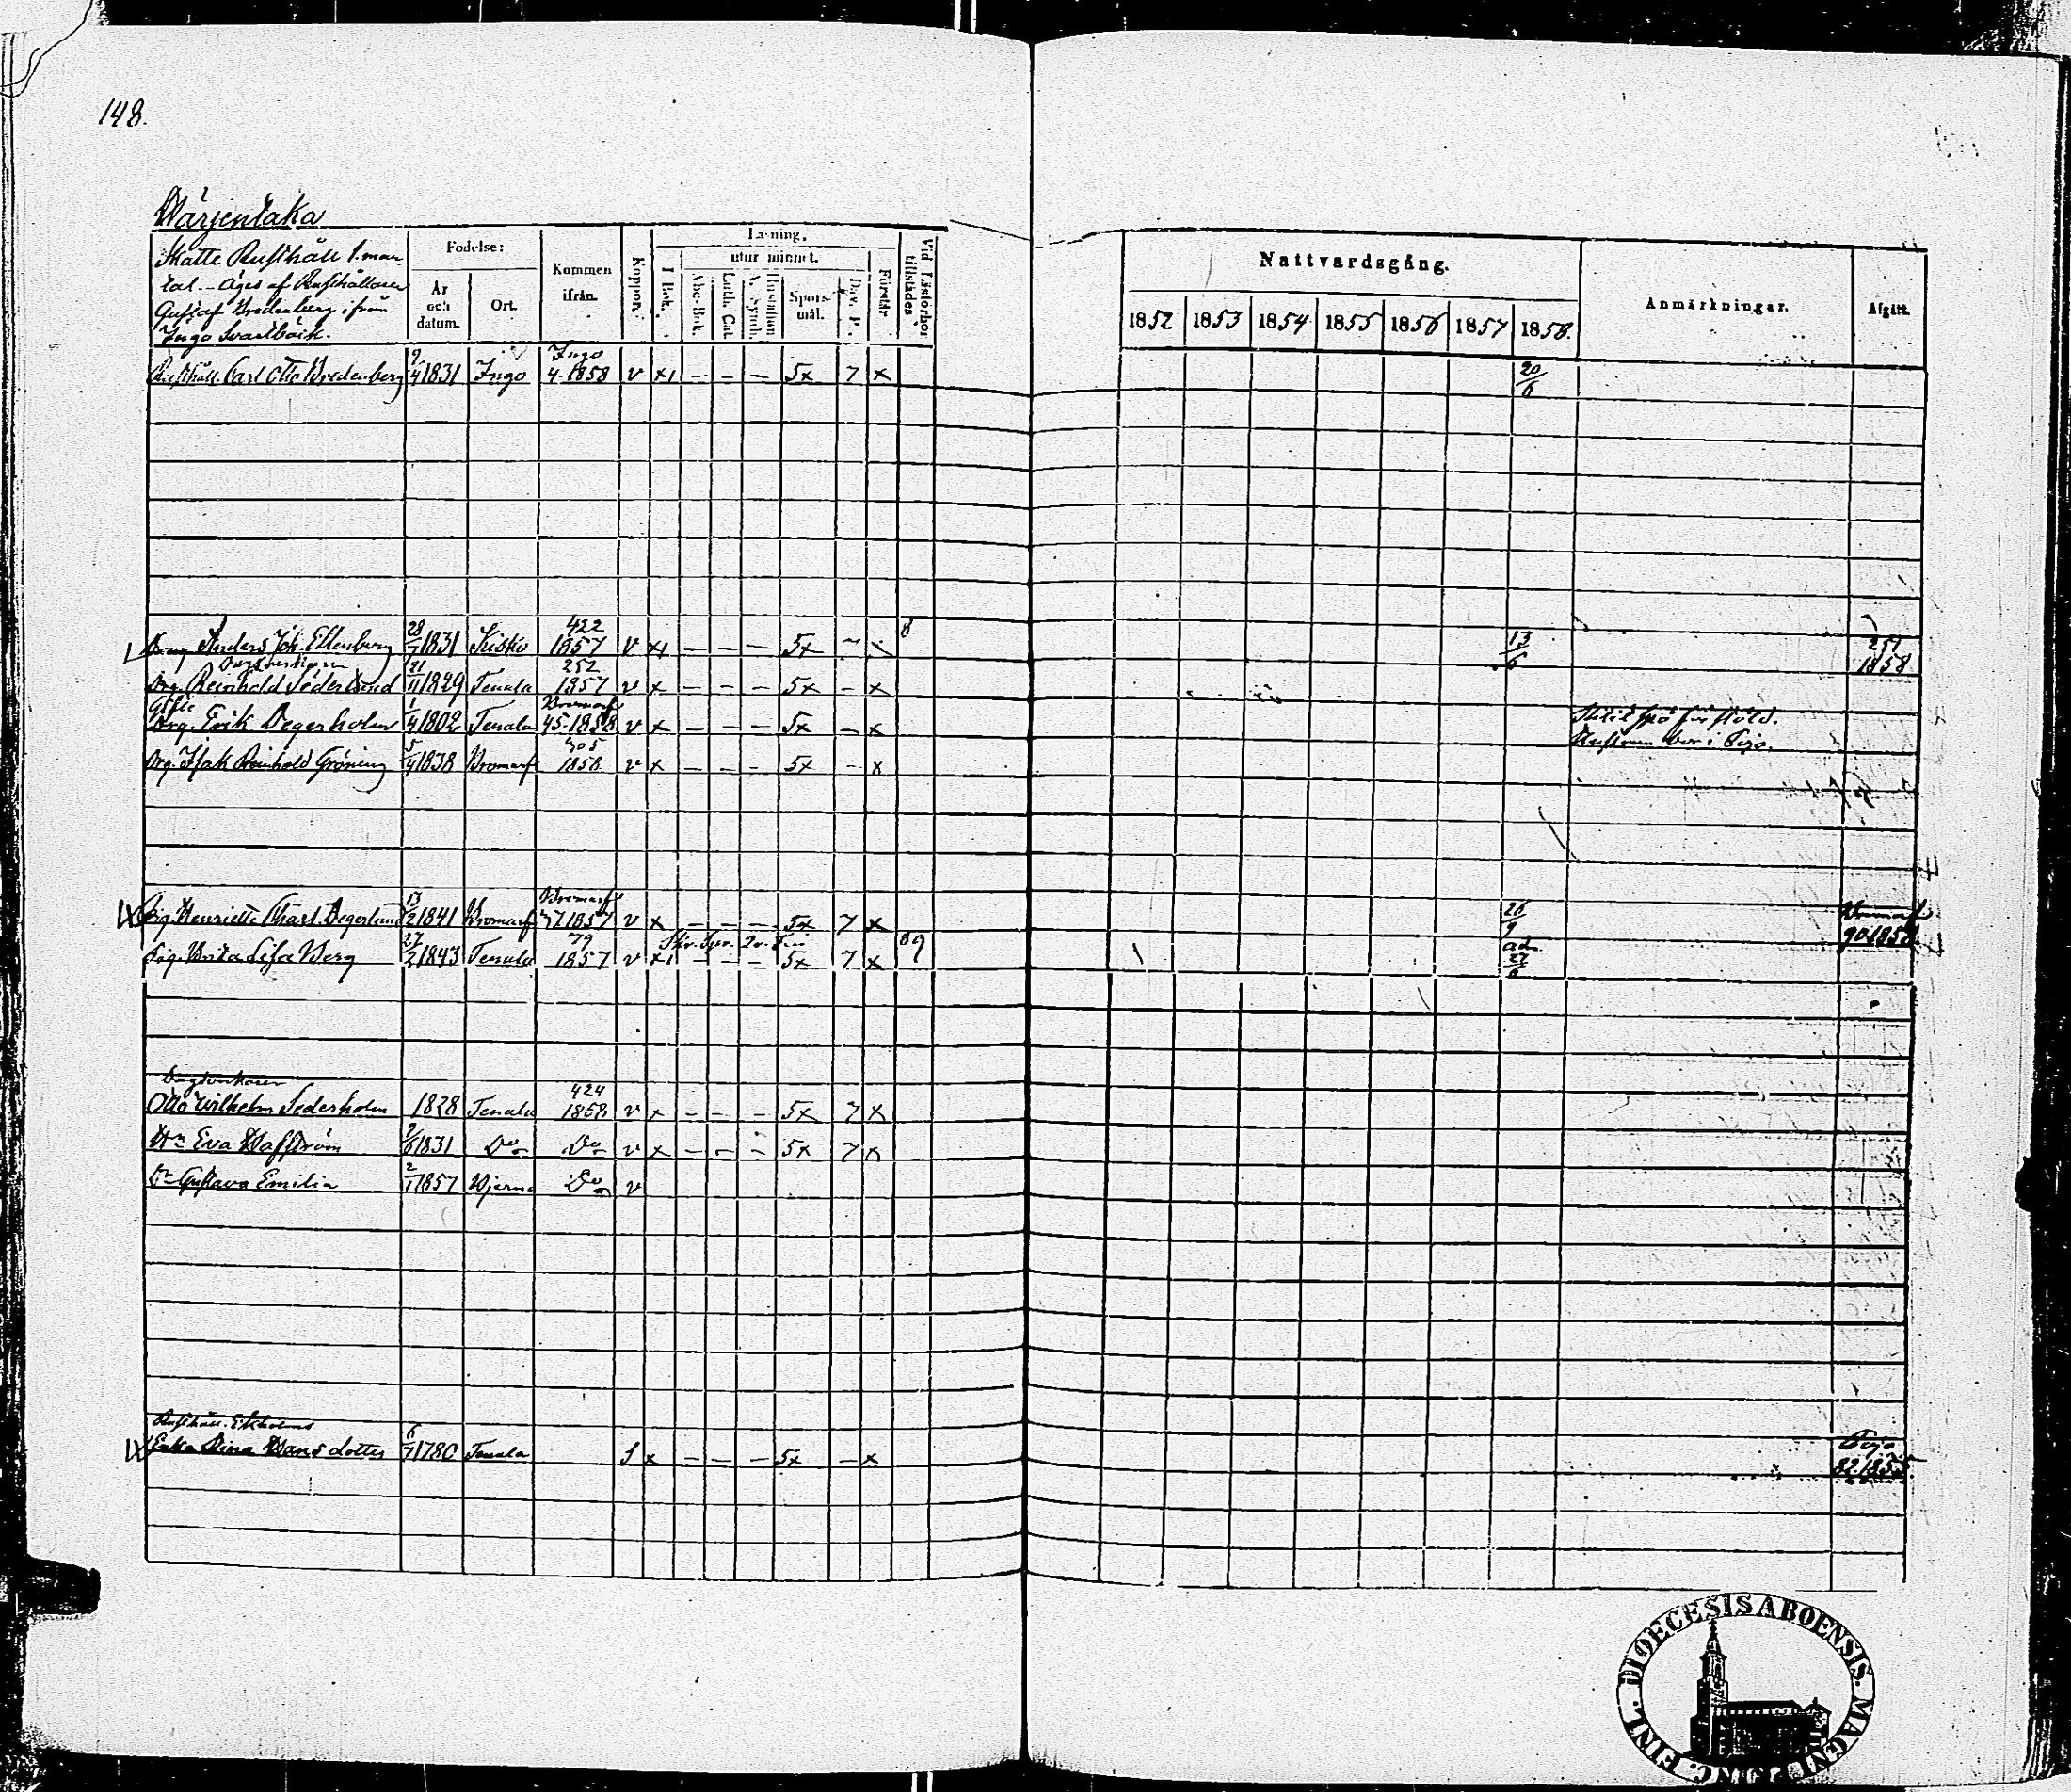 148.
Wärjentaka
Skatte Rusthåll 1. man-
tal. – Äges af Rusthållaren
Gustaf Bredenberg, från
Ingo Svartbäck.
Födelse:
År och datum.
Ort.
Kommen ifrån.
Koppor.
Läsning,
I Bok.
utur minnet.
Abc-Bok.
Luth. Cat.
A. Symb.
Hustaflan
Spörs-mål.
Dav. P.
Förstår
Vid Läsförhör tillstädes
Nattvardsgång.
1852 1853 1854 1855 1856 1857 1858.
Anmärkningar.
Afgått.
Rusthåll. Carl Otto Bredenberg 9/4 1831 Ingo Ingo 4. 1858 v x – – – 5x 7 x 20/6
Dräng Anders Joh. Ellenberg 28/7 1831 Kisko 422 1857 v x – – – 5x 7 8 13/6 251 1858
Drg. Reinhold Söderlund 21/11 1829 Tenala 252 1857 v x – – – 5x – x
Gifte
Drg. Erik Degerholm 1/4 1802 Tenala Bromarf 45. 1858 v x – – – 5x – x
Hustrun bor i Pojo.
Drg. Isak Reinhold Gröning 5/4 1838 Bromarf 305 1858 v x – – – 5x – x
Pig. Henriette Charl. Degerlund 13/2 1841 Bromarf Bromarf 37 1857 v x – – – 5x 7 x 26/9 Bromarf 90. 1858
Pig. Brita Lisa Berg 27/2 1843 Tenala 79 1857 v x – – – 5x 7 x 89 adm. 27/6
Dagsverkaren
Otto Wilhelm Sederholm 1828 Tenala 424 1858 v x – – – 5x 7 x
H:n Eva Hafström 2/6 1831 D:o D:o v x – – – 5x 7 x
D:r Gustava Emilia 2/7 1857 Bjerno D:o v
Rusthåll. Ekholms
Enka Stina Hansdotter 6/7 1780 Tenala S x – – – 5x – x Pojo 82. 1855.
DIOECESIS ABOENSIS. MAGNI DUC. FINL.